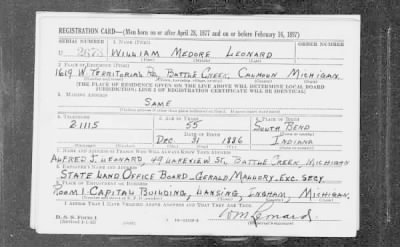 REGISTRATION CARD—(Men born on or after April 28, 1877 and on or before February 16, 1897)
SERIAL NUMBER 1. NAME (Print) ORDER NUMBER
U 2673 WILLIAM MEDORE LEONARD
2. PLACE OF RESIDENCE (Print)
1619 W. TERRITORIAL RD, BATTLE CREEK, CALHOUN MICHIGAN.
[THE PLACE OF RESIDENCE GIVEN ON THE LINE ABOVE WILL DETERMINE LOCAL BOARD
JURISDICTION; LINE 2 OF REGISTRATION CERTIFICATE WILL BE IDENTICAL]
3. MAILING ADDRESS
SAME
4. TELEPHONE 5. AGE IN YEARS 6. PLACE OF BIRTH
2-1115 55 SOUTH BEND
DATE OF BIRTH
DEC. 31 1886 INDIANA
7. NAME AND ADDRESS OF PERSON WHO WILL ALWAYS KNOW YOUR ADDRESS
ALFRED J. LEONARD, 49 LAKEVIEW ST., BATTLE CREEK, MICHIGAN
8. EMPLOYER'S NAME AND ADDRESS
STATE LAND OFFICE BOARD - GERALD MALLORY - EXC. SECY.
9. PLACE OF EMPLOYMENT OR BUSINESS
ROOM 1 CAPITAL BUILDING, LANSING, INGHAM, MICHIGAN
I AFFIRM THAT I HAVE VERIFIED ABOVE ANSWERS AND THAT THEY ARE TRUE.
D. S. S. Form 1
Wm Leonard